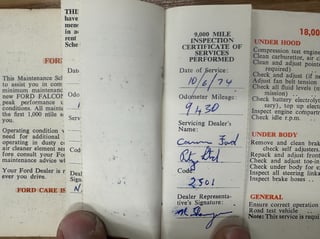 FORD
This Maintenance Sc
to assist you in com
minimum maintenanc
new FORD FALCON
peak performance
conditions. All main
the first 1,000 mile s
you.
Operating condition
need for additional
operating in dusty c
air cleaner element se
fore consult your Fo
maintenance advice wh
Your Ford Dealer is r
ever you drive.
FORD CARE IS
THE
have
menc
in ac
rent
Sche
Date
Odo
Serv
Code
Deal
Signa
N.
9,000 MILE
INSPECTION
CERTIFICATE OF
SERVICES
PERFORMED
Date of Service:
10/6/74
Odometer Mileage:
9430
Servicing Dealer's
Name:
Ford
Code
2501
Dealer Representa-
tive's Signature:
18,00
UNDER HOOD
Compression test engine
Clean carburetor, air cl
Clean and adjust points
required)
Check and adjust (if
Check all fluid levels (
mission)
Check battery electroly
sary), top up electrol
Inspect engine compart
Check idle r.p.m.
UNDER BODY
Remove and clean brake
check self adjusters.
Repack and adjust front
Check and adjust toe-in
Check under body for s
Inspect all steering linka
Inspect brake hoses
GENERAL
Ensure correct operation
Road test vehicle
Note: This service is requi